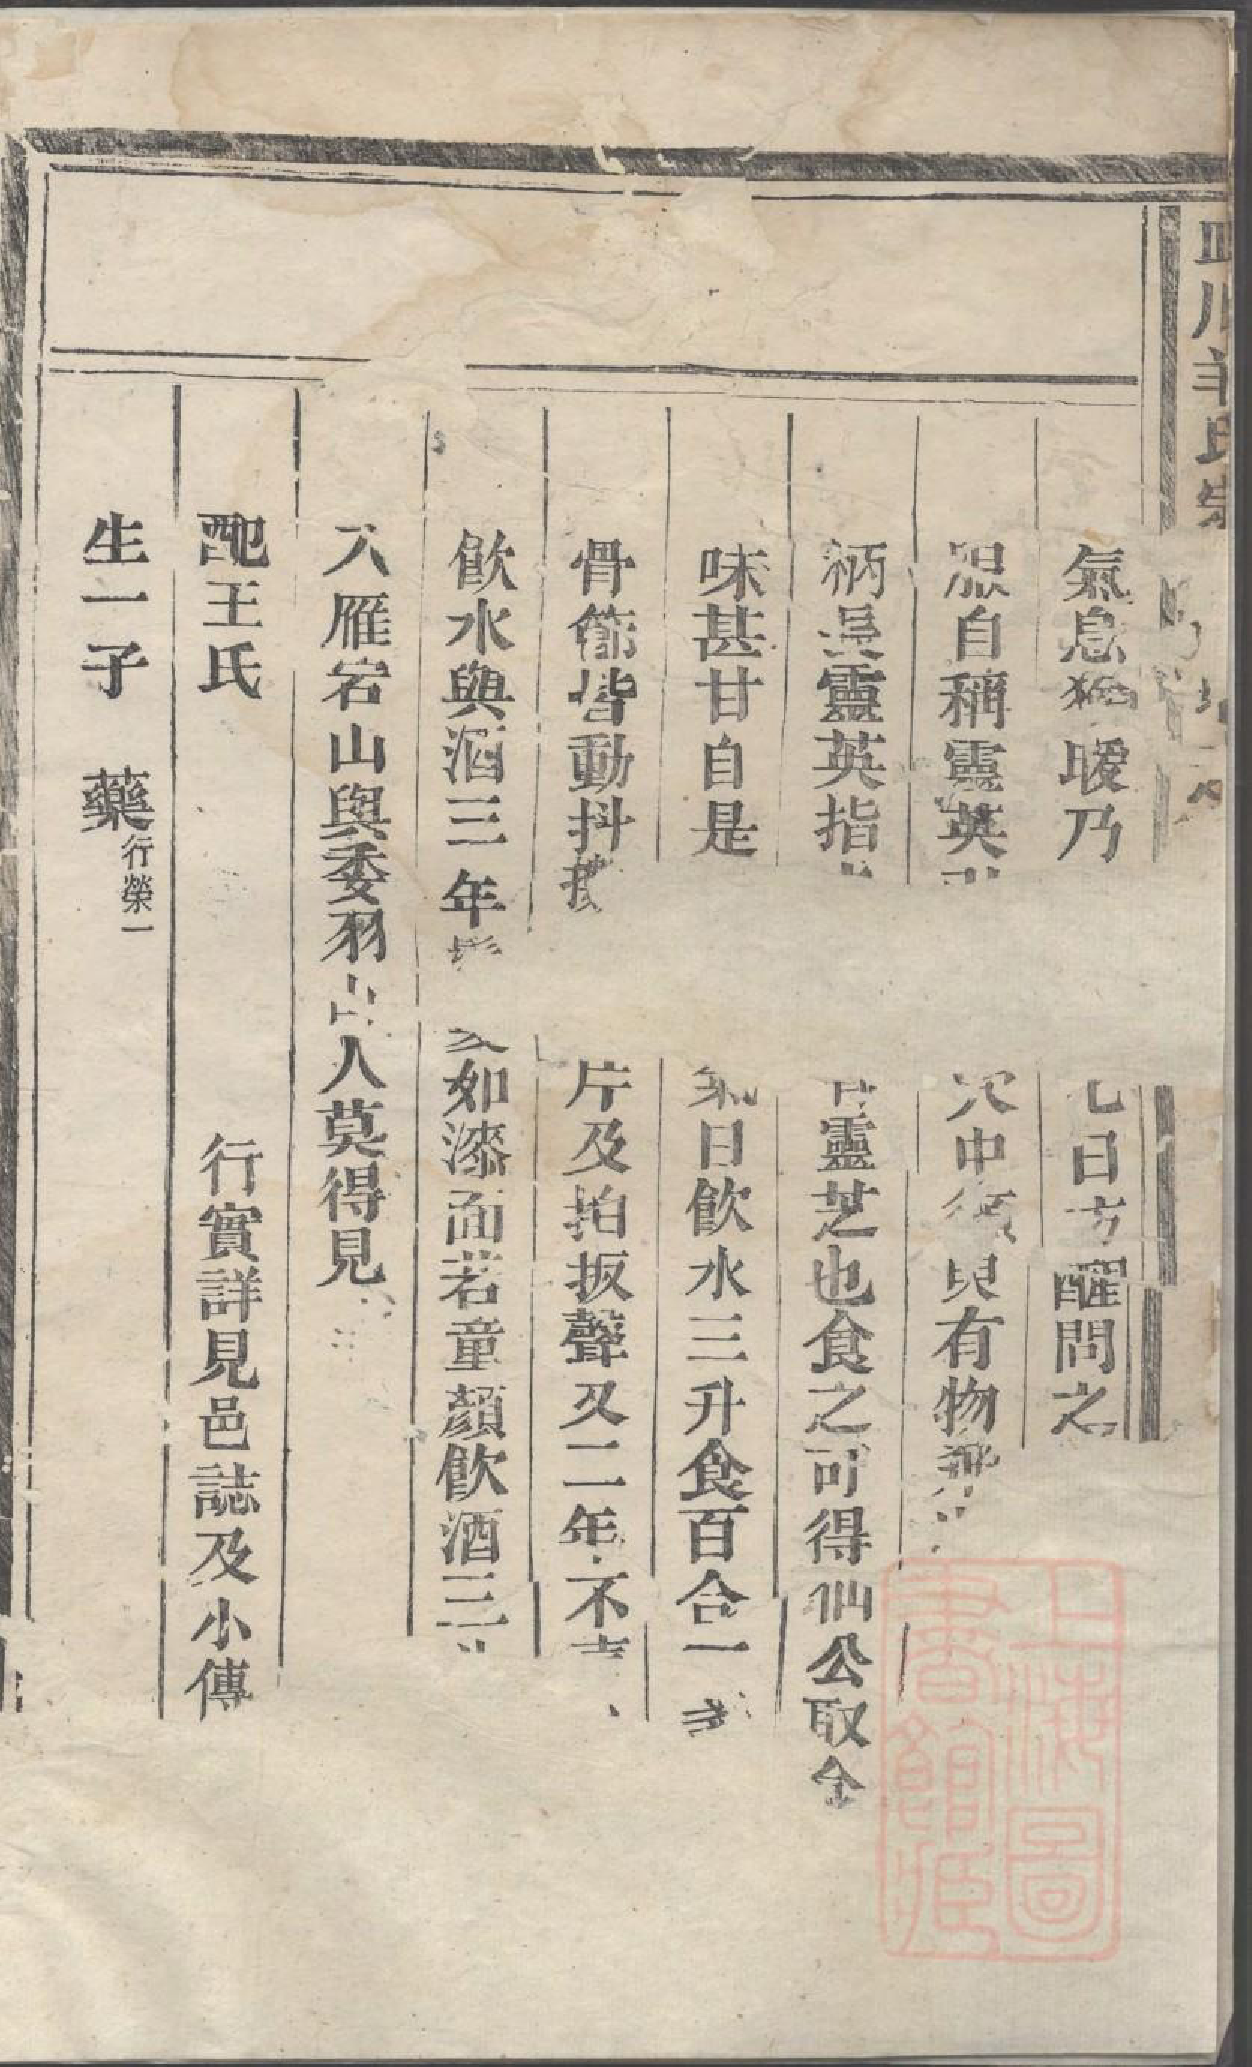 川羊氏宗
氣息猶煖乃七日方醒問之
服自稱靈英穴中須臾有物
柄吳靈英指靈芝也食之可得仙公取全
味甚甘自是氣日飲水三升食百合一
骨節皆動抖片及拍扳聲又二年不
飲水與酒三年如漆面若童顏飲酒三
入雁宕山與委羽山人莫得見
配王氏 行實詳見邑誌及小傳
生一子 藥行榮一
上海圖書館藏